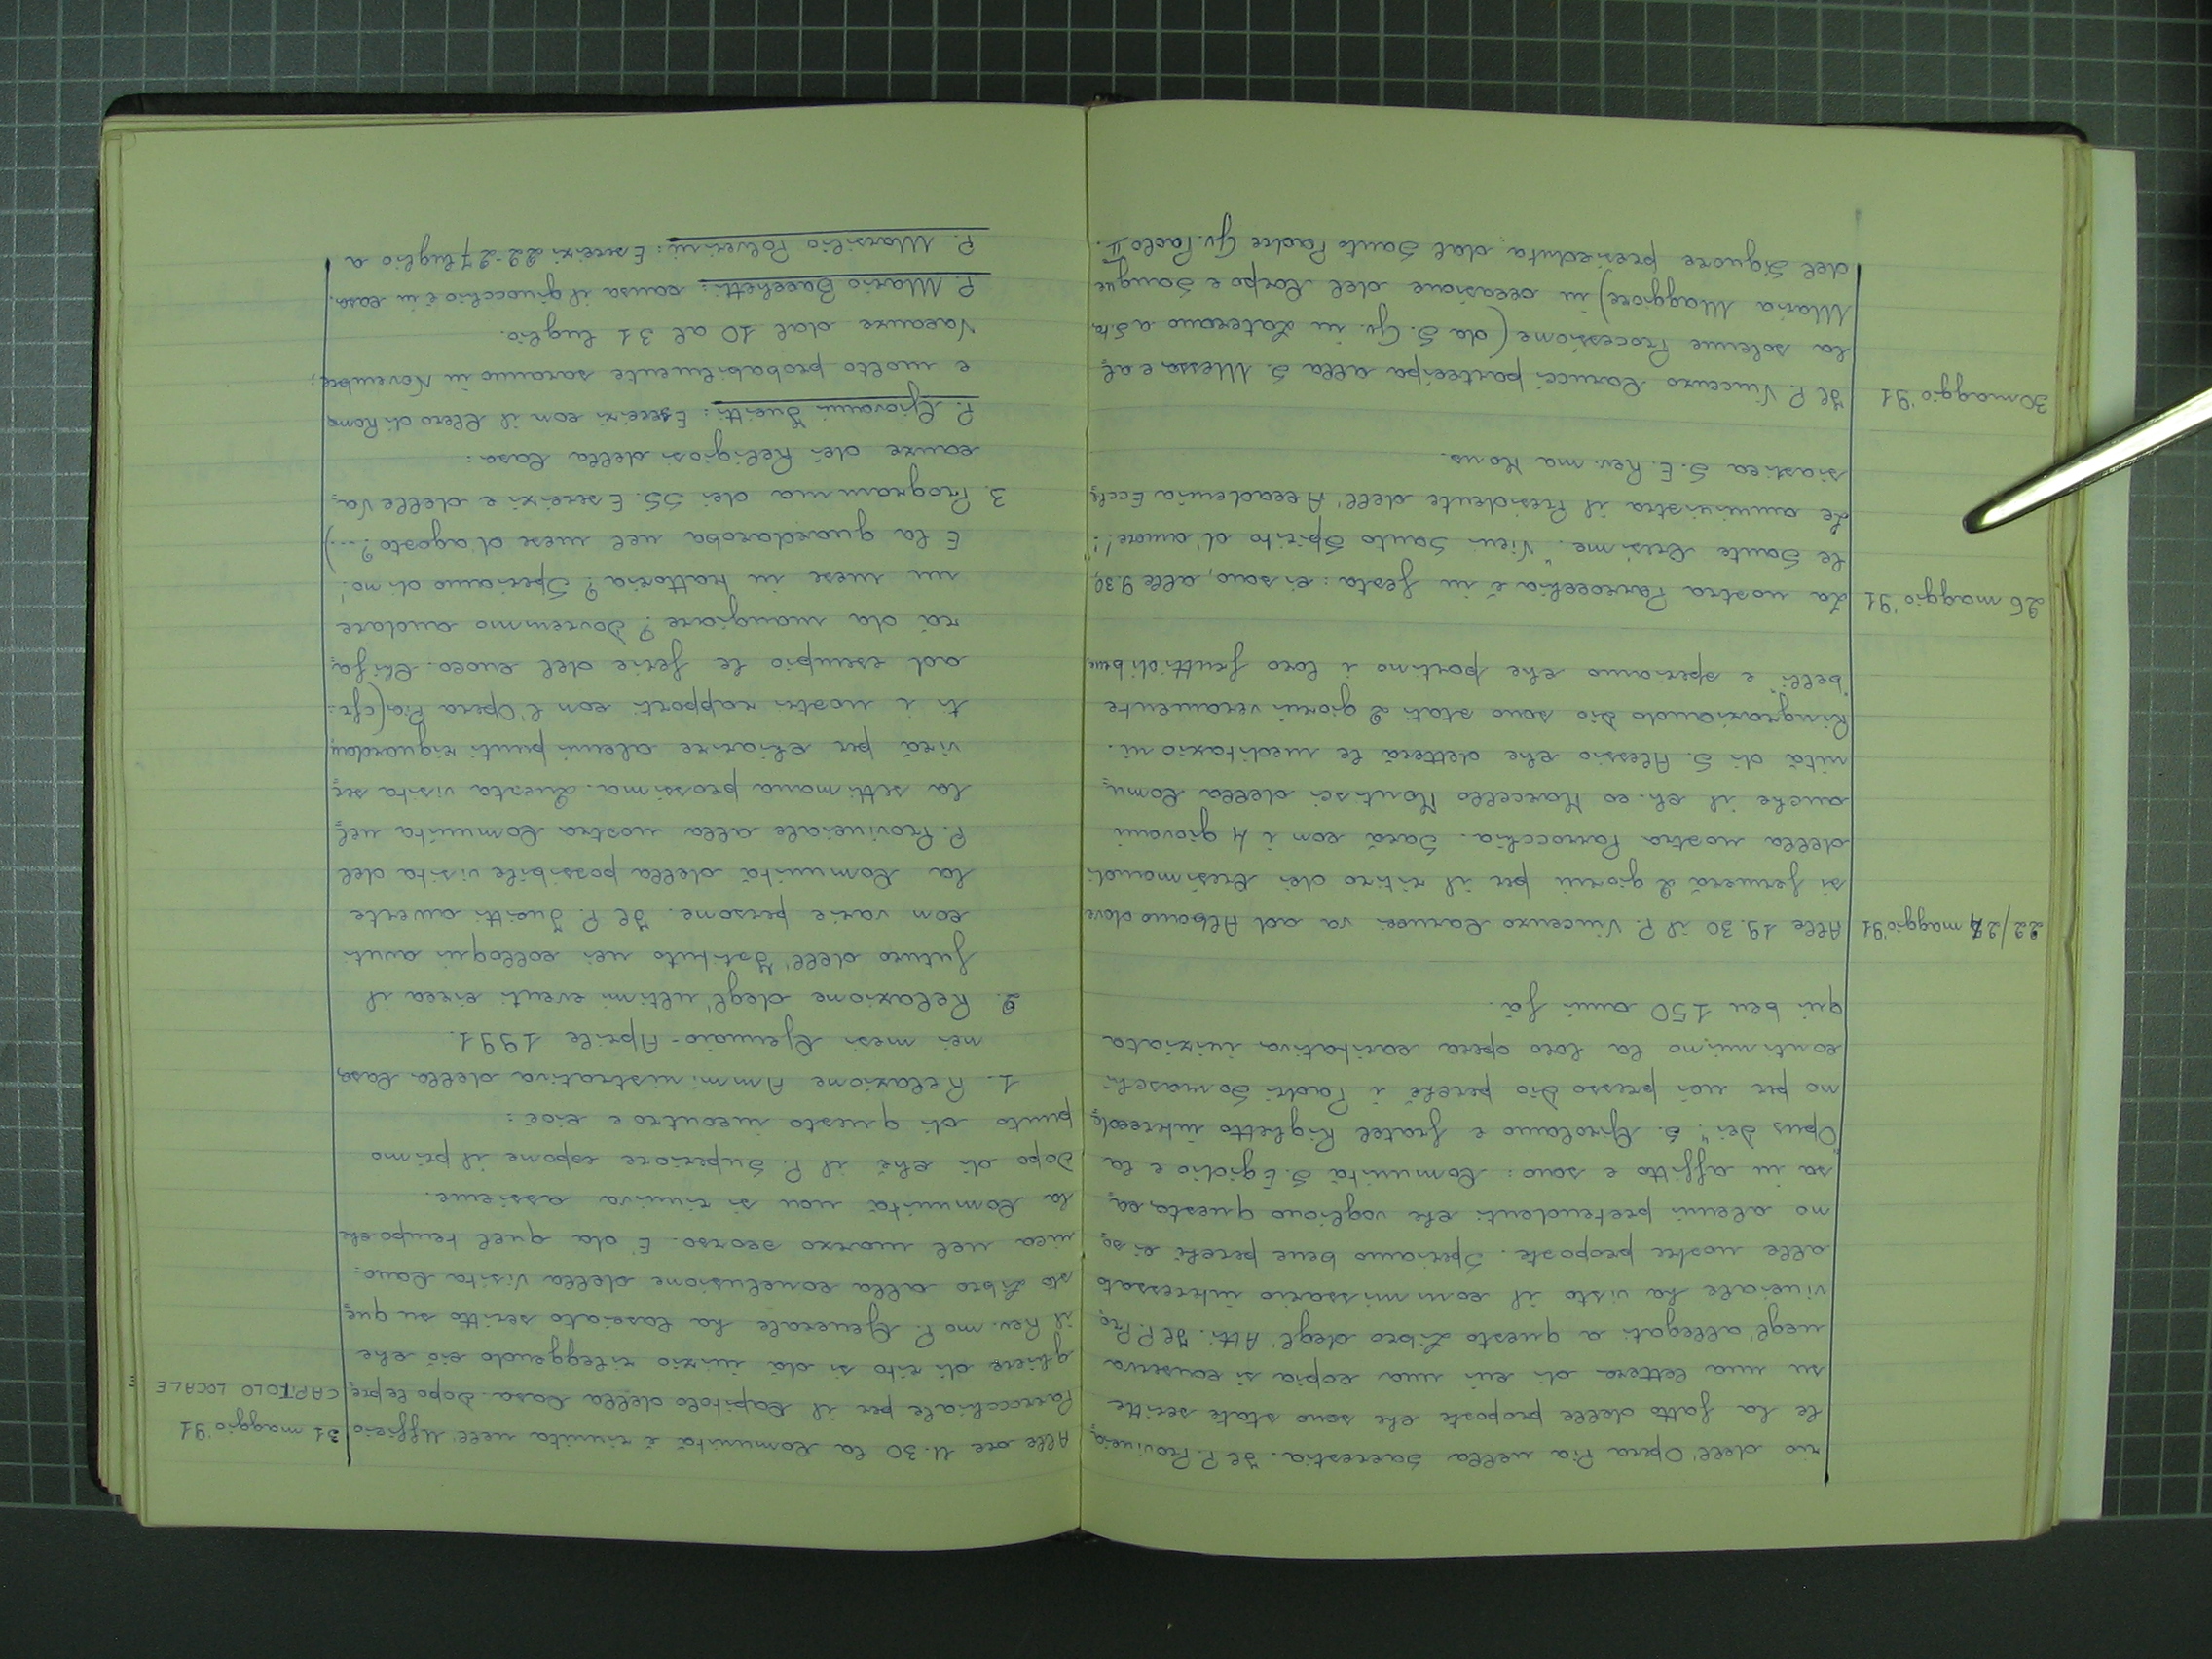 rio dell'Opera Pia nella Sacrestia. Il P. Provincia
le ha fatto delle proposte che sono state scritte
su una lettera di cui una copia si conserva
negl'allegati a questo Libro degl'Atti. Il P. Pro
vinciale ha visto il commissario interessato
alle nostre proposte. Speriamo bene perché ci so
no alcuni pretendenti che vogliono questa ca
sa in affitto e sono: Comunità S. Egidio e la
"Opus Dei". S. Girolamo e fratel Righetto intercede
mo per noi presso Dio perché i Padri Somaschi
continuino la loro opera caritativa iniziata
qui ben 150 anni fà.
22/24 maggio '91 Alle 19.30 il P. Vincenzo Carucci va ad Albano dove
si fermerà 2 giorni per il ritiro dei Cresimandi
della nostra Parrocchia. Sarà con i 4 giovani
anche il ch. co. Marcello Montisci della Comu
nità di S. Alessio che detterà le meditazioni.
Ringraziando Dio sono stati 2 giorni veramente
"belli" e speriamo che portino i loro frutti di bene
26 maggio '91 La nostra Parrocchia è in festa: ci sono, alle 9.30,
le Sante Cresime. "Vieni Santo Spirito d'amore!":
Le amministra il Presidente dell'Accademia Eccle
siastica S. E. Rev.ma Mons.
30 maggio '91 Il P. Vincenzo Carucci partecipa alla S. Messa e al
la solenne Processione (da S. Gv. in Laterano a S.ta
Maria Maggiore) in occasione del Corpo e Sangue
del Signore presieduta dal Santo Padre Gv. Paolo II.
31 maggio '91 Alle ore 11.30 la Comunità è riunita nell'Ufficio
CAPITOLO LOCALE: Parrocchiale per il Capitolo della Casa. Dopo le pre
ghiere di rito si dà inizio rileggendo ciò che
il Rev.mo P. Generale ha lasciato scritto su que
sto Libro alla conclusione della Visita Cano:
nica nel marzo scorso. È da quel tempo che
la Comunità non si riuniva assieme.
Dopo di ché il P. Superiore espone il primo
punto di questo incontro e cioè:
1. Relazione Amministrativa della Casa
nei mesi Gennaio-Aprile 1991.
2. Relazione degl'ultimi eventi circa il
futuro dell'Istituto nei colloqui avuti
con varie persone. Il P. Jucitti avverte
la Comunità della possibile visita del
P. Provinciale alla nostra Comunità nel
la settimana prossima. Questa visita ser
virà per chiarire alcuni punti riguardan
ti i nostri rapporti con l'Opera Pia (cfr.:
ad esempio le ferie del cuoco. Chi fa
rà da mangiare? Dovremmo andare
un mese in trattoria? Speriamo di no!
E la guardaroba nel mese d'agosto?...)
3. Programma dei SS. Esercizi e delle Va
canze dei Religiosi della Casa:
P. Giovanni Jucitti: Esercizi con il Clero di Roma
e molto probabilmente saranno in Novembre;
Vacanze dal 10 al 31 luglio.
P. Mario Bacchetti: causa il ginocchio è in casa.
P. Marsilio Polverini: Esercizi 22-27 luglio a